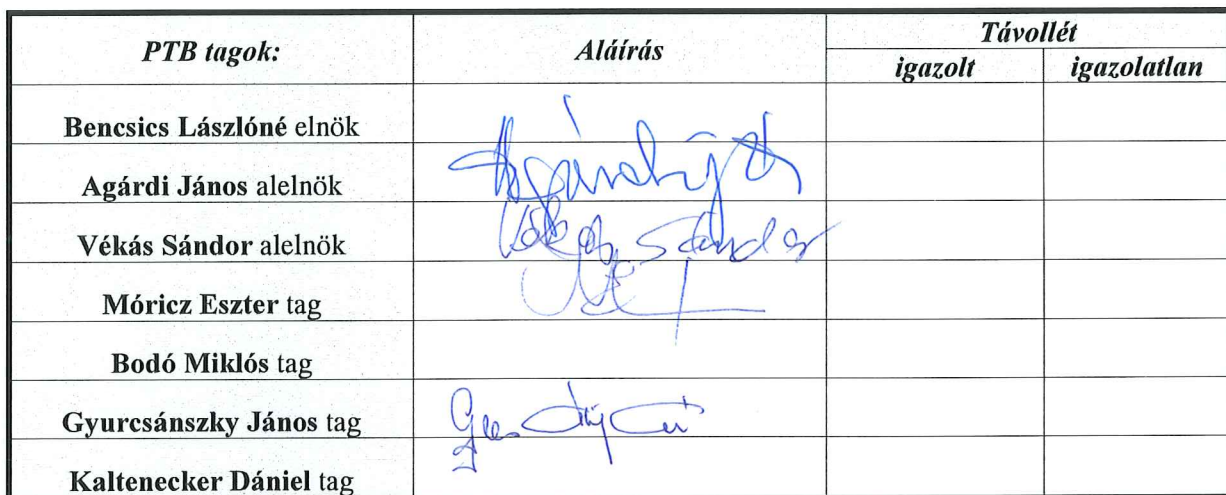 PTB tagok: Aláírás Távollét
igazolt igazolatlan
Bencsics Lászlóné elnök
Agárdi János alelnök
Vékás Sándor alelnök Vékás Sándor
Móricz Eszter tag
Bodó Miklós tag
Gyurcsánszky János tag
Kaltenecker Dániel tag